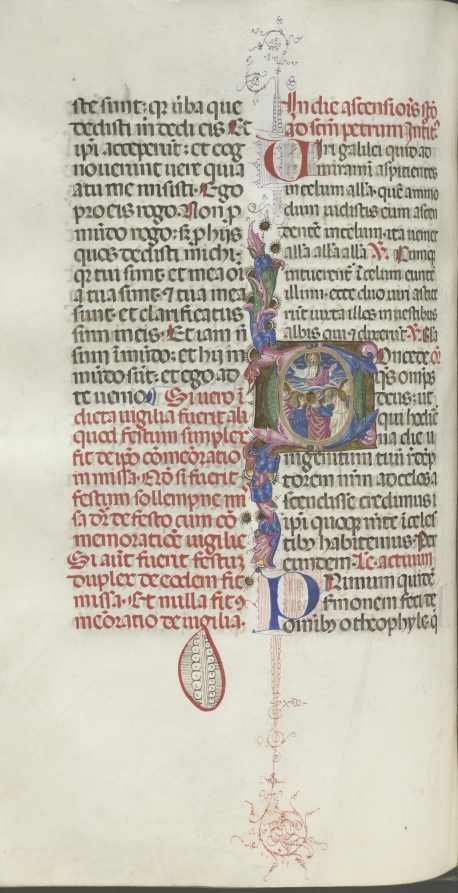 ste sunt: qr uba que
dedisti m dedi eis Et
ipi acceperut: et cog
nouerunt uere quia
a tu me misisti. Ego
pro eis rogo. Non p
mudo rogo: s; p hijs
quos dedisti michi:
qr tui sunt: et mea oi
a tua sunt: 7 tua mea
sunt: et clarificatus
sum in eis. Et iam n
sum i mudo: et hij in
mudo sut: et ego ad
te uenio. Si uero i
dicta uigilia fuerit ali
quod festum simplex
fit de ipo comemoratio
in missa. Et si fuerit
festum sollempne mi
sa dr de festo cum co
memoratioe uigilie
Si aut fuerit festum
duplex de eodem fit
missa. Et nulla fit 9
meoratio de uigilia.
In die ascensiois sto
ad scm petrum Introit
Uiri galilei quid ad
miramini aspicientes
in celum alla. que ammo
dum uidistis eum ascen
dente in celum: ita ueniet
alla alla alla V. Cumq
intuerent i celum eunte
illum: ecce duo uiri astite
rut iuxta illos in uestibus
albis qui 7 dixerut. V. Gla
Oncede
qs omps
deus: ut
qui hodie
na die u
nigenitum tuu redep
torem nrm ad celos a
scendisse credimus:
ipi quoqe mte i celes
tibus habitemus. Per
eundem. Lc. actuum
Primum quide
sermonem feci de
omibus o theophyle q